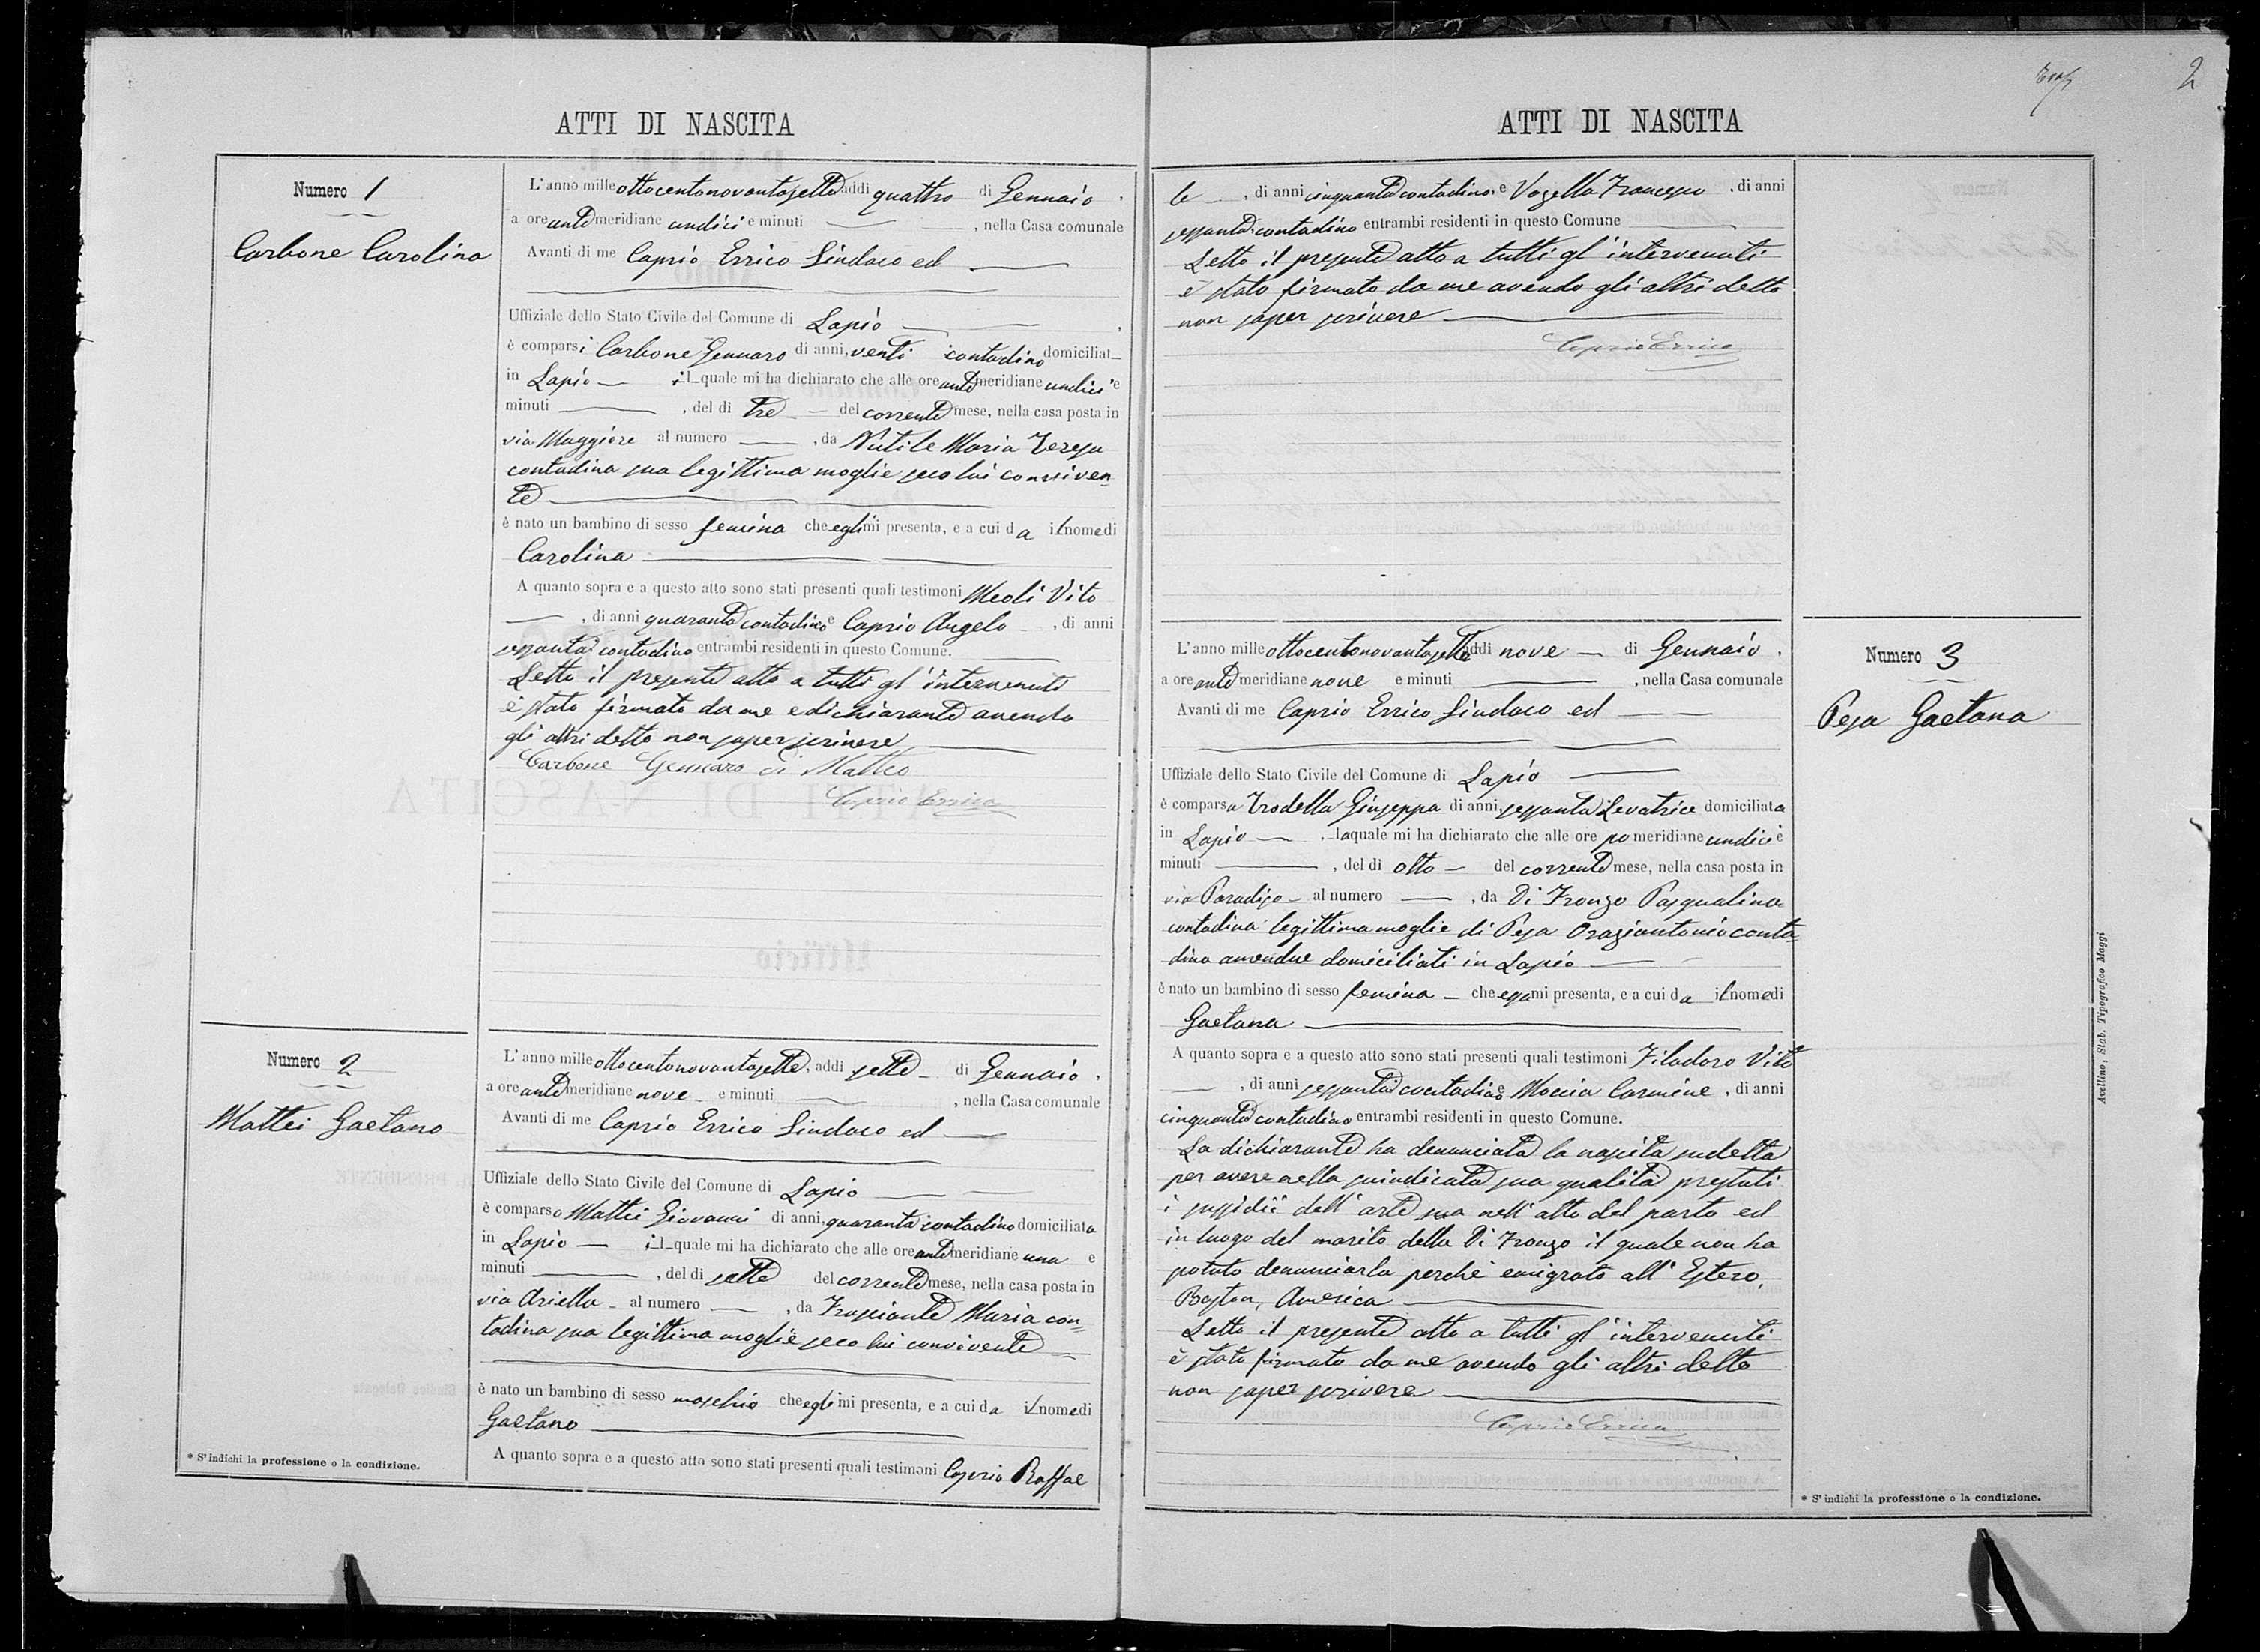 ATTI DI NASCITA
Numero 1
Carbone Carolina
L'anno milleottocentonovantasette addi quattro di Gennaio,
a ore antemeridiane undici e minuti — , nella Casa comunale
Avanti di me Caprio Errico Sindaco ed —
Uffiziale dello Stato Civile del Comune di Lapio — ,
è comparsi Carbone Gennaro di anni, venti contadino domiciliat—
in Lapio — il quale mi ha dichiarato che alle ore antemeridiane undici e
minuti — , del dì tre — del corrente mese, nella casa posta in
via Maggiore al numero — , da Nutile Maria Teresa
contadina sua legittima moglie seco lui conviven=
te —
è nato un bambino di sesso femina che egli mi presenta, e a cui da il nome di
Carolina —
A quanto sopra e a questo atto sono stati presenti quali testimoni Meoli Vito
— , di anni quaranta contadino e Caprio Angelo — , di anni
sessanta contadino entrambi residenti in questo Comune. —
Letto il presente atto a tutti gl'intervenuti
è stato firmato da me e dichiarante avendo
gli altri detto non saper scrivere —
Carbone Gennaro di Matteo
Caprio Errico
Numero 2
Mattei Gaetano
L'anno milleottocentonovantasette, addi sette — di Gennaio,
a ore antemeridiane nove — e minuti — , nella Casa comunale
Avanti di me Caprio Errico Sindaco ed —
Uffiziale dello Stato Civile del Comune di Lapio —
è comparso Mattei Giovanni di anni, quaranta contadino domiciliato
in Lapio — il quale mi ha dichiarato che alle ore antemeridiane una e
minuti — , del dì sette del corrente mese, nella casa posta in
via Ariella — al numero — , da Frusciante Maria con=
tadina sua legittima moglie seco lui convivente —
è nato un bambino di sesso maschio che egli mi presenta, e a cui da il nome di
Gaetano —
A quanto sopra e a questo atto sono stati presenti quali testimoni Caprio Raffae
* S'indichi la professione o la condizione.
2
ATTI DI NASCITA
le — , di anni cinquanta contadino e Vozella Francesco , di anni
sessanta contadino entrambi residenti in questo Comune —
Letto il presente atto a tutti gl'intervenuti
è stato firmato da me avendo gli altri detto
non saper scrivere —
Caprio Errico
Numero 3
Pesa Gaetana
L'anno milleottocentonovantasette addi nove — di Gennaio,
a ore antemeridiane nove e minuti — , nella Casa comunale
Avanti di me Caprio Errico Sindaco ed —
Uffiziale dello Stato Civile del Comune di Lapio —
è comparsa Trodella Giuseppa di anni, sessanta Levatrice domiciliata
in Lapio — , la quale mi ha dichiarato che alle ore pomeridiane undici e
minuti — , del dì otto — del corrente mese, nella casa posta in
via Paradiso — al numero — , da Di Fronzo Pasqualina
contadina legittima moglie di Pesa Oraziantonio conta=
dino amendue domiciliati in Lapio —
è nato un bambino di sesso femina — che essa mi presenta, e a cui da il nome di
Gaetana —
A quanto sopra e a questo atto sono stati presenti quali testimoni Filadoro Vito
— , di anni sessanta contadino e Moccia Carmine , di anni
cinquanta contadino entrambi residenti in questo Comune.
La dichiarante ha denunciata la nascita sudetta
per avere nella suindicata sua qualità prestati
i sussidii dell'arte sua nell'atto del parto ed
in luogo del marito della Di Fronzo il quale non ha
potuto denunciarla perchè emigrato all'Estero,
Boston, America —
Letto il presente atto a tutti gl'intervenuti
è stato firmato da me avendo gli altri detto
non saper scrivere —
Caprio Errico
* S'indichi la professione o la condizione.
Avellino, Stab. Tipografico Maggi